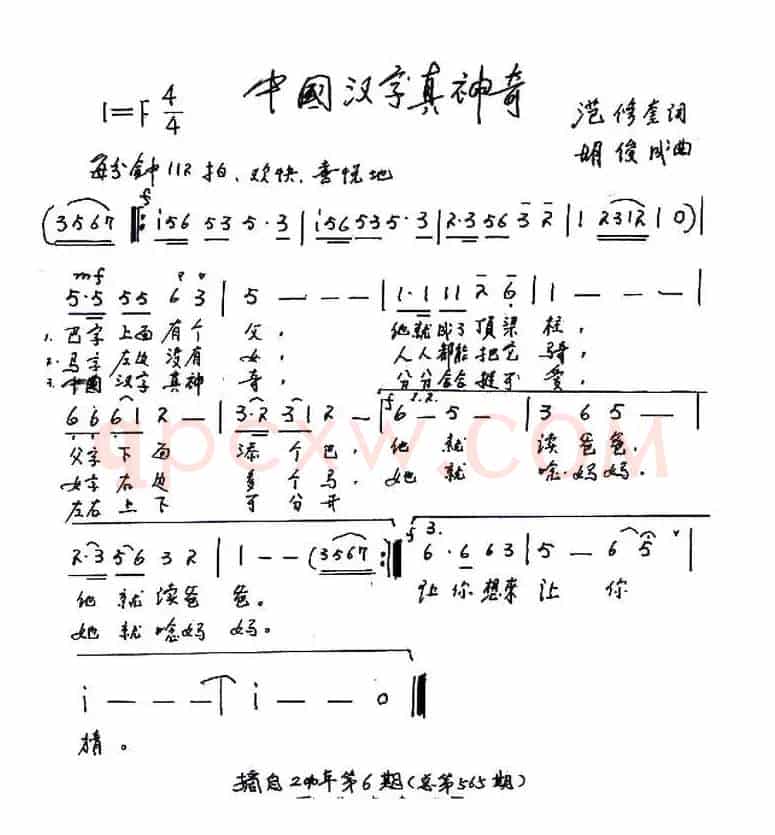 中國汉字真神奇
1=F 4/4
范修奎词
胡俊成曲
每分钟112拍、欢快、喜悦地
f
(3567 ‖: i56 53 5·3 | i56 53 5·3 | 2·3 56 3 2 | 1 2312 | 1 0) |
mf
5·5 55 6 3 | 5 — — — | 1·1 11 2 6 | 1 — — — |
1. 巴字上面有个 父, 他就成了頂梁柱,
2. 马字左边没有 女, 人人都能把它骑,
3. 中國汉字真神 奇, 分分合合挺可爱,
f 1.2.
6 6 61 2 — | 3·2 31 2 — | 6 — 5 — | 3 6 5 — |
父字下面 添个巴, 他就 读爸爸,
女字右边 多个马, 她就 唸妈妈,
左右上下 可分开
qpcxw.COM
f 3.
2·3 56 3 2 | 1 — — (3567 :‖ 6·6 6 3 | 5 — 6 5 ∨ |
他就读爸爸。 让你想来让你
她就唸妈妈。
i — — — | i — — 0 ‖
猜。
播自2000年第6期(总第565期)